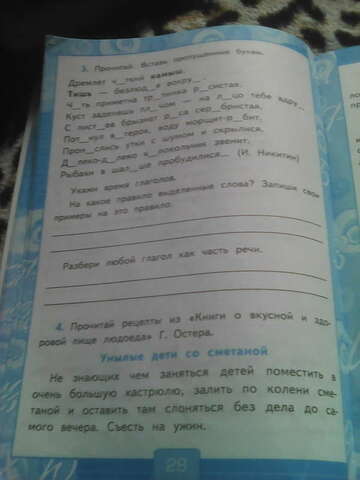 3. Прочитай. Вставь пропущенные буквы.
Дремлет ч__ткий камыш.
Тишь — безлюд__е вокру__.
Ч__ть приметна тр__пинка р__систая.
Куст заденешь пл__чом — на л__цо тебе вдру__
С лист__ев брызнет р__са сер__бристая.
Пот__нул в__терок, воду морщит-р__бит.
Прон__слись утки с шумом и скрылися.
Д__леко-д__леко к__локольчик звенит.
Рыбаки в шал__ше пробудилися... (И. Никитин)
Укажи время глаголов.
На какое правило выделенные слова? Запиши свои
примеры на это правило.
Разбери любой глагол как часть речи.
4. Прочитай рецепты из «Книги о вкусной и здо-
ровой пище людоеда» Г. Остера.
Унылые дети со сметаной
Не знающих чем заняться детей поместить в
очень большую кастрюлю, залить по колени сме-
таной и оставить там слоняться без дела до са-
мого вечера. Съесть на ужин.
28